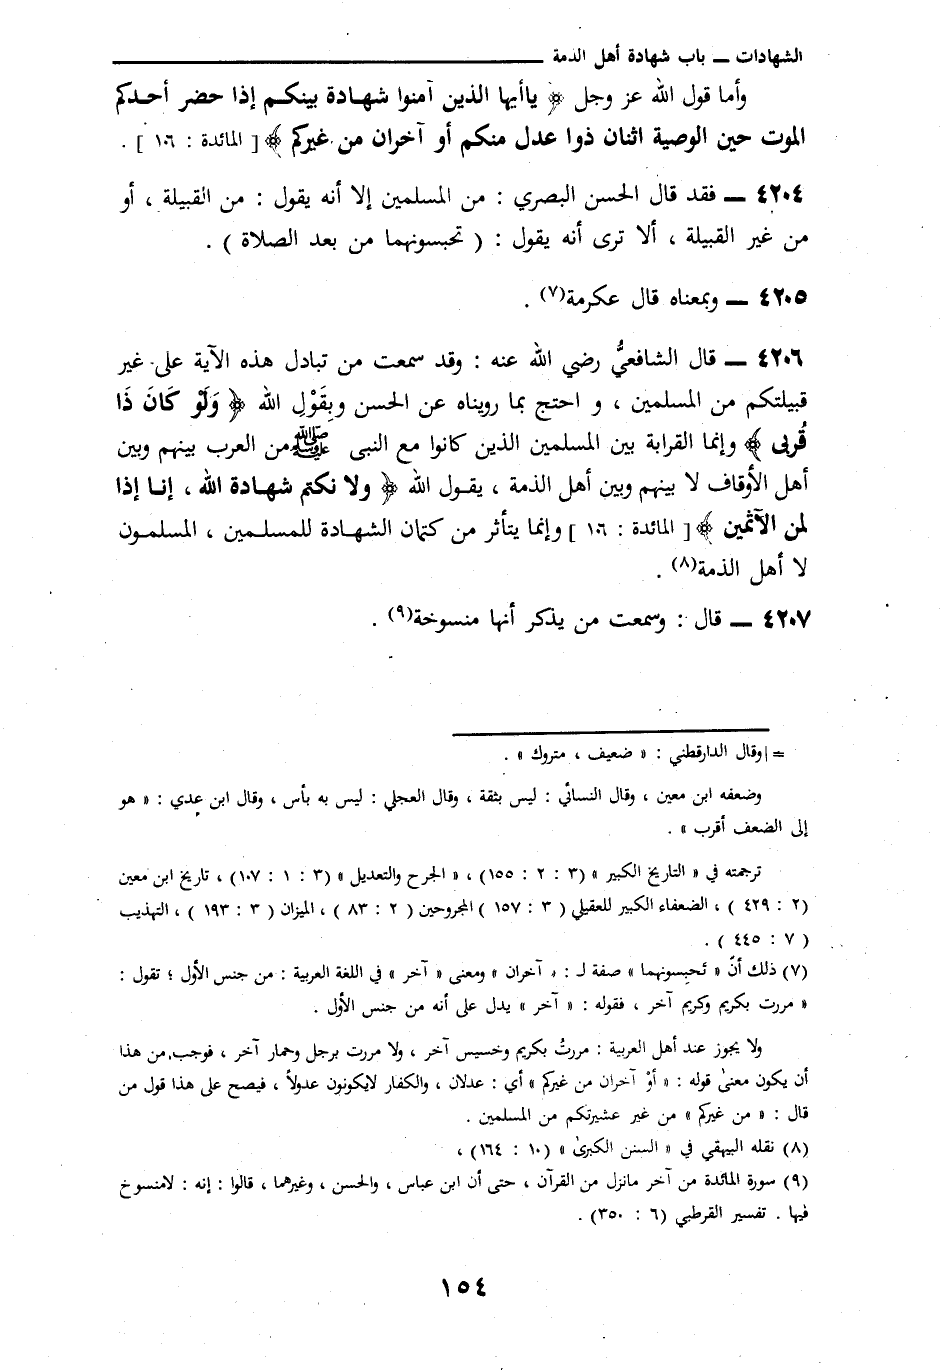 الشهادات ــ باب شهادة أهل الذمة
وأما قول الله عز وجل ﴿ ياأيها الذين آمنوا شهادة بينكم إذا حضر أحدكم
الموت حين الوصية اثنان ذوا عدل منكم أو آخران من غيركم ﴾ [ المائدة : ١٠٦ ] .
٤٢٠٤ ــ فقد قال الحسن البصري : من المسلمين إلا أنه يقول : من القبيلة ، أو
من غير القبيلة ، ألا ترى أنه يقول : ( تحبسونهما من بعد الصلاة ) .
٤٢٠٥ ــ وبمعناه قال عكرمة(٧) .
٤٢٠٦ ــ قال الشافعيُّ رضي الله عنه : وقد سمعت من تبادل هذه الآية على غير
قبيلتكم من المسلمين ، و احتج بما رويناه عن الحسن وبِقَوْلِ الله ﴿ وَلَوْ كَانَ ذَا
قُربى ﴾ وإنما القرابة بين المسلمين الذين كانوا مع النبى ﷺ من العرب بينهم وبين
أهل الأوقاف لا بينهم وبين أهل الذمة ، يقول الله ﴿ ولا نكتم شهادة الله ، إنا إذا
لمن الآثمين ﴾ [ المائدة : ١٠٦ ] وإنما يتأثر من كتمان الشهادة للمسلمين ، المسلمون
لا أهل الذمة(٨) .
٤٢٠٧ ــ قال : وسمعت من يذكر أنها منسوخة(٩) .
= وقال الدارقطني : « ضعيف ، متروك » .
وضعفه ابن معين ، وقال النسائي : ليس بثقة ، وقال العجلي : ليس به بأس ، وقال ابن عدي : « هو
إلى الضعف أقرب » .
ترجمته في « التاريخ الكبير » (٣ : ٢ : ١٥٥) ، « الجرح والتعديل » (٣ : ١ : ١٠٧) ، تاريخ ابن معين
(٢ : ٤٢٩ ) ، الضعفاء الكبير للعقيلي ( ٣ : ١٥٧ ) المجروحين ( ٢ : ٨٣ ) ، الميزان ( ٣ : ١٩٣ ) ، التهذيب
( ٧ : ٤٤٥ ) .
(٧) ذلك أنّ « تحبِسونهما » صفة لـ : « آخران » ومعنى « آخر » في اللغة العربية : من جنس الأول ؛ تقول :
« مررت بكريم وكريم آخر ، فقوله : « آخر » يدل على أنه من جنس الأول .
ولا يجوز عند أهل العربية : مررتُ بكريم وخسيس آخر ، ولا مررت برجل وحمار آخر ، فوجب من هذا
أن يكون معنىٰ قوله : « أوْ آخران من غيركم » أي : عدلان ، والكفار لايكونون عدولاً ، فيصح على هذا قول من
قال : « من غيركم » من غير عشيرتكم من المسلمين .
(٨) نقله البيهقي في « السنن الكبرىٰ » (١٠ : ١٦٤) ،
(٩) سورة المائدة من آخر مانزل من القرآن ، حتى أن ابن عباس ، والحسن ، وغيرهما ، قالوا : إنه : لامنسوخ
فيها . تفسير القرطبي (٦ : ٣٥٠) .
١٥٤